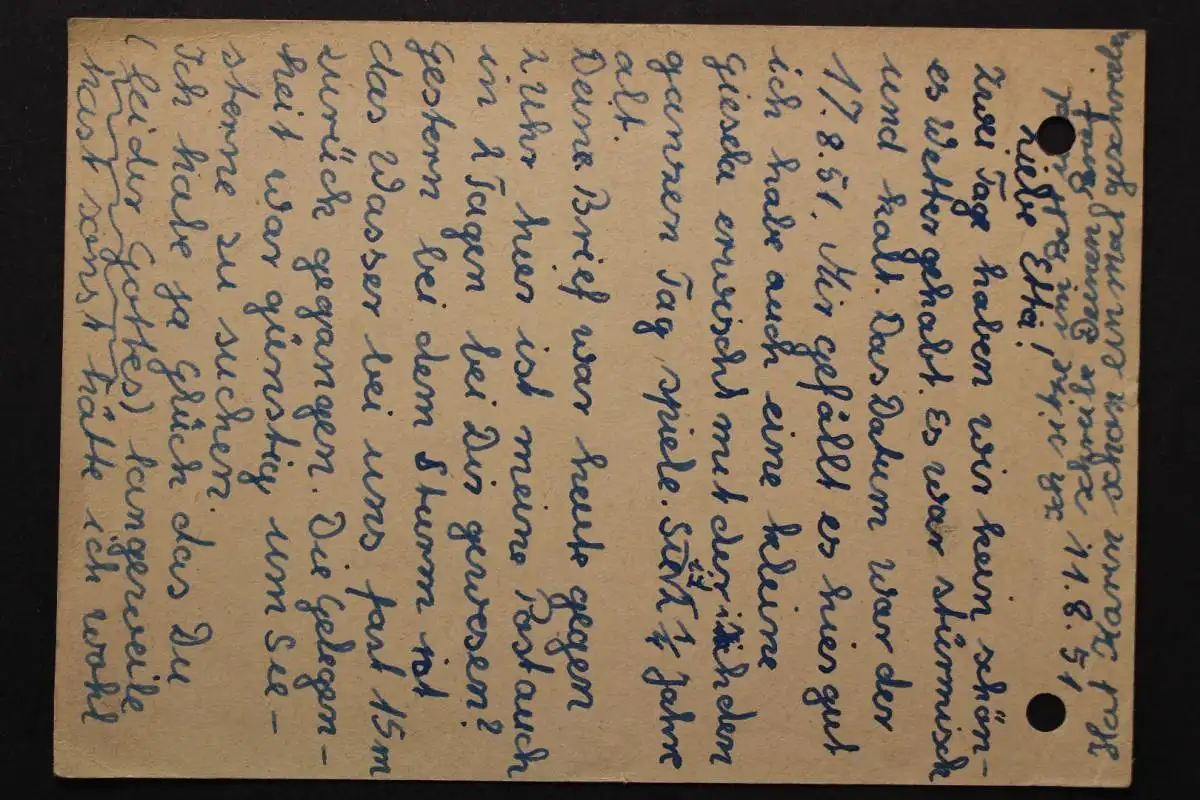 Hat Karin schon einmal geschrieben
11. 8. 51,
Liebe Etta!
Zwei Tage haben wir kein schön-
es Wetter gehabt. Es war stürmisch
und kalt. Das Datum war der
17.8.51. Mir gefällt es hier gut
ich habe auch eine kleine
Giesela erwischt mit der ich den
ganzen Tag spiele. Jahre
alt.
Deine Brief war heute gegen
2 Uhr hier ist meine Post auch
in 2 Tagen bei Dir gewesen?
Gestern bei dem Sturm ist
das Wasser bei uns fast 15m
zurück gegangen. Die Gelegen-
heit war günstig um See-
sterne zu suchen.
Ich habe ja Glück das Du
(leider Gottes) langeweile
hast sonst hätte ich wohl